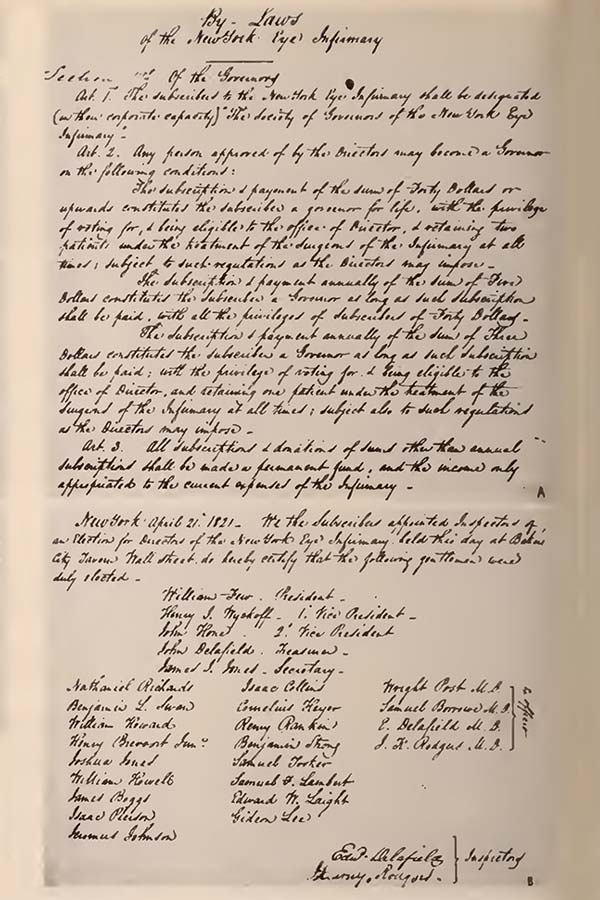 By-Laws
of the New York Eye Infirmary
Section 1st Of the Governors
Art. 1. The subscribers to the New York Eye Infirmary shall be designated
(in their corporate capacity) "The society of Governors of the New York Eye
Infirmary"
Art. 2. Any person approved of by the Directors may become a Governor
on the following conditions:
The subscription & payment of the sum of Forty Dollars or
upwards constitutes the subscriber a governor for life, with the privilege
of voting for, & being eligible to the office of Director, & retaining two
patients under the treatment of the surgeons of the Infirmary at all
times; subject to such regulations as the Directors may impose.
The subscription & payment annually of the sum of Five
Dollars constitutes the subscriber a Governor as long as such subscription
shall be paid, with all the privileges of subscribers of Forty Dollars.
The subscription & payment annually of the sum of Three
Dollars constitutes the subscriber a Governor as long as such subscription
shall be paid; with the privilege of voting for & being eligible to the
office of Director, and retaining one patient under the treatment of the
surgeons of the Infirmary at all times; subject also to such regulations
as the Directors may impose.
Art. 3. All subscriptions & donations of sums other than annual
subscriptions shall be made a permanent fund, and the income only
appropriated to the current expenses of the Infirmary.
A
New York April 21st 1821 - We the Subscribers appointed Inspectors of
an Election for Directors of the New York Eye Infirmary held this day at
City Tavern Wall Street do hereby certify that the following gentlemen were
duly elected.
William Few. President.
Henry I. Wyckoff. 1st Vice President.
John Hone. 2d Vice President
John Delafield. Treasurer.
James I. Jones. Secretary.
Nathaniel Richards Isaac Collins Wright Post M.D.
Benjamin L. Swan Cornelius Heyer Samuel Borrowe M.D.
William Howard Henry Rankin E. Delafield M.D.
Henry Brevoort Junr. Benjamin Strong J. K. Rodgers M.D.
ex officio
Joshua Jones Samuel Tooker
William Howell Samuel F. Lambert
James Boggs Edward W. Laight
Isaac Pierson Gideon Lee
Jeromus Johnson
Edwd. Delafield
Rodgers.
Inspectors
B